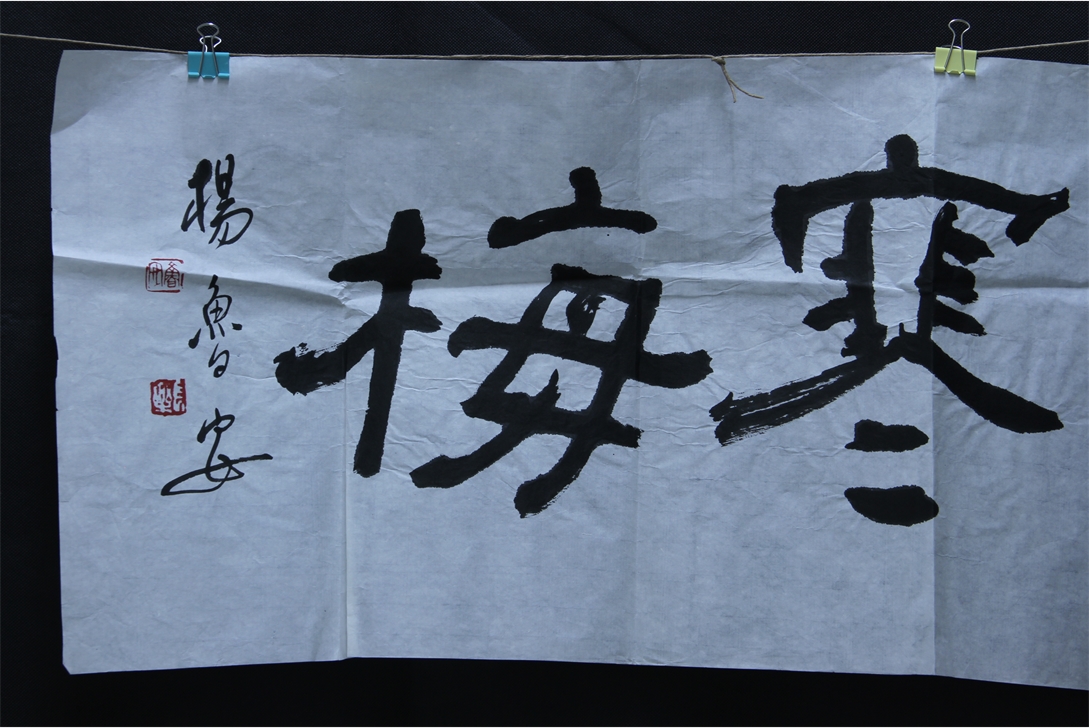 寒梅
楊魯安